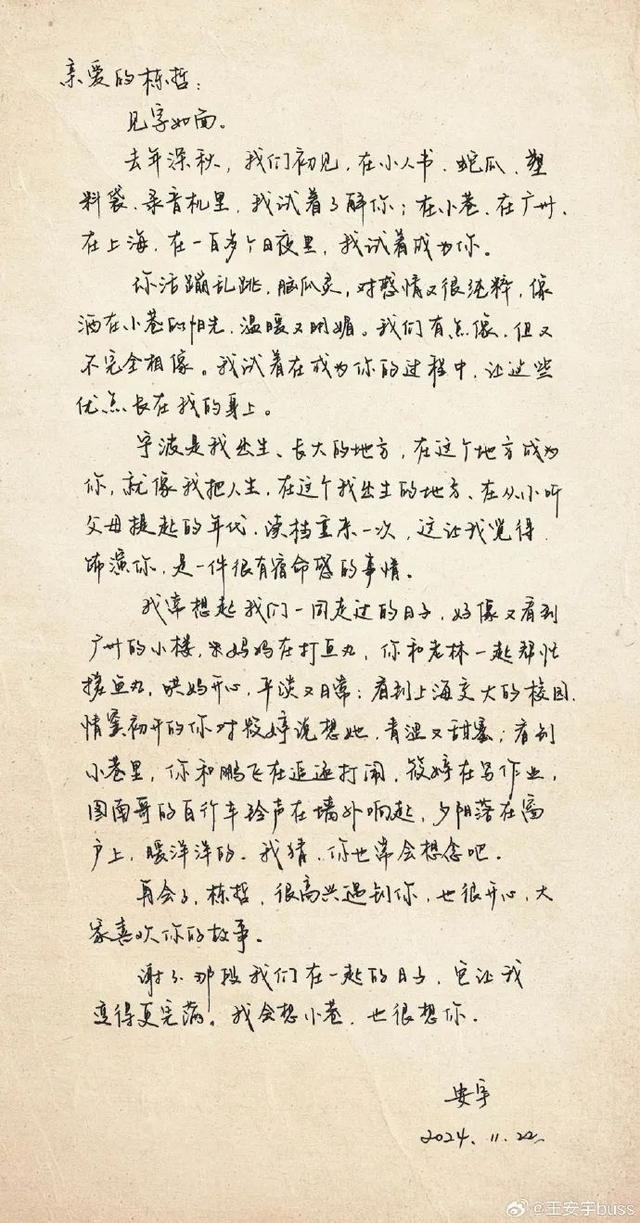 亲爱的栋哲：
见字如面。
去年深秋，我们初见，在小人书、蛇瓜、塑
料袋、录音机里，我试着了解你；在小巷、在广州、
在上海、在一百多个日夜里，我试着成为你。
你活蹦乱跳，脑瓜灵，对感情又很纯粹，像
洒在小巷的阳光，温暖又明媚。我们有点像，但又
不完全相像。我试着在成为你的过程中，让这些
优点长在我的身上。
宁波是我出生、长大的地方，在这个地方成为
你，就像我把人生，在这个我出生的地方、在从小听
父母提起的年代，读档重来一次，这让我觉得，
饰演你，是一件很有宿命感的事情。
我常想起我们一同走过的日子，好像又看到
广州的小楼，宋妈妈在打鱼丸，你和老林一起帮忙
搓鱼丸，哄妈开心，平淡又日常；看到上海交大的校园，
情窦初开的你对筱婷说想她，青涩又甜蜜；看到
小巷里，你和鹏飞在追逐打闹，筱婷在写作业，
图南哥的自行车铃声在墙外响起，夕阳落在窗
户上，暖洋洋的。我猜，你也常会想念吧。
再会了，栋哲，很高兴遇到你，也很开心，大
家喜欢你的故事。
谢了那段我们在一起的日子，它让我
变得更完满。我会想小巷，也很想你。
安宇
2024.11.22
@王安宇buss